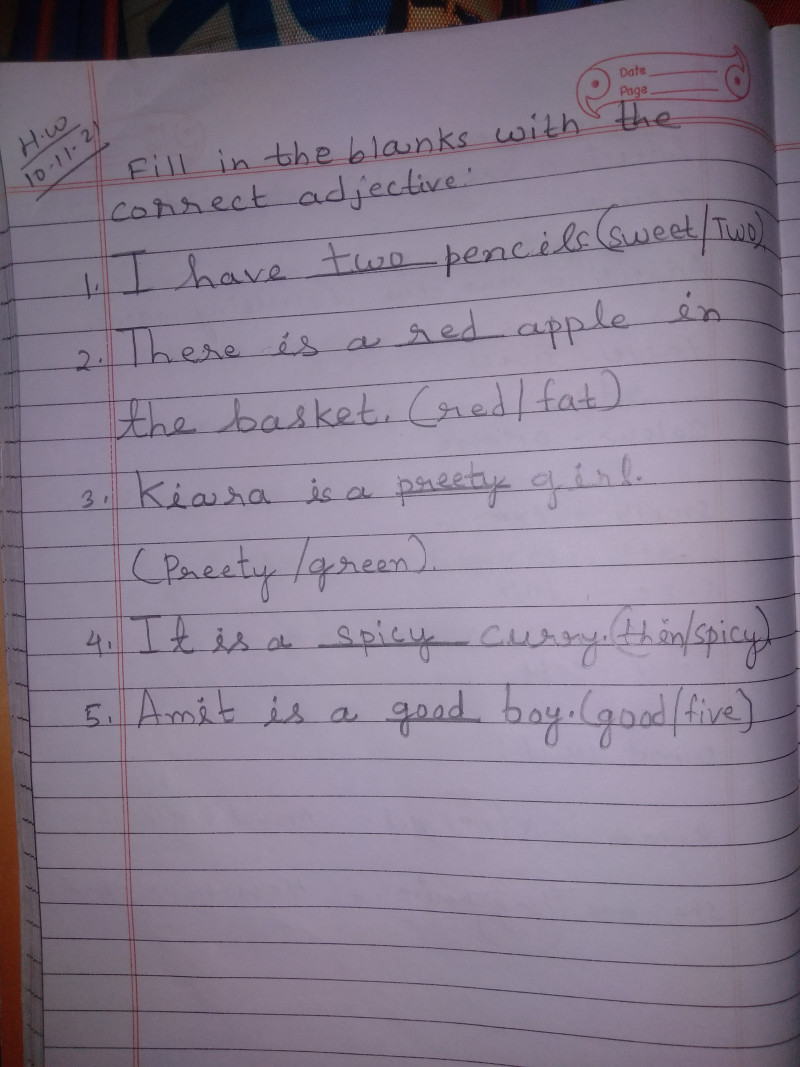 Date
Page
H.W
10.11.21
Fill in the blanks with the
correct adjective:
1. I have two pencils (sweet/Two)
2. There is a red apple in
the basket. (red/fat)
3. Kiara is a preety girl.
(Preety/green).
4. It is a spicy curry. (thin/spicy)
5. Amit is a good boy. (good/five)